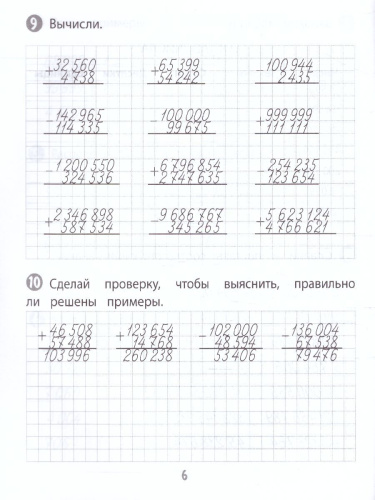 9 Вычисли.
+32 560 +65 399 -100 944
4 738 54 242 2 435
-142 965 -100 000 +999 999
114 335 99 675 111 111
-1 200 550 +6 796 854 -254 235
324 536 2 747 635 123 654
+2 346 898 -9 686 767 +5 623 124
587 534 345 265 4 766 621
10 Сделай проверку, чтобы выяснить, правильно
ли решены примеры.
+46 508 +123 654 -102 000 -136 004
57 488 14 768 48 594 67 538
103 996 260 238 53 406 79 476
6